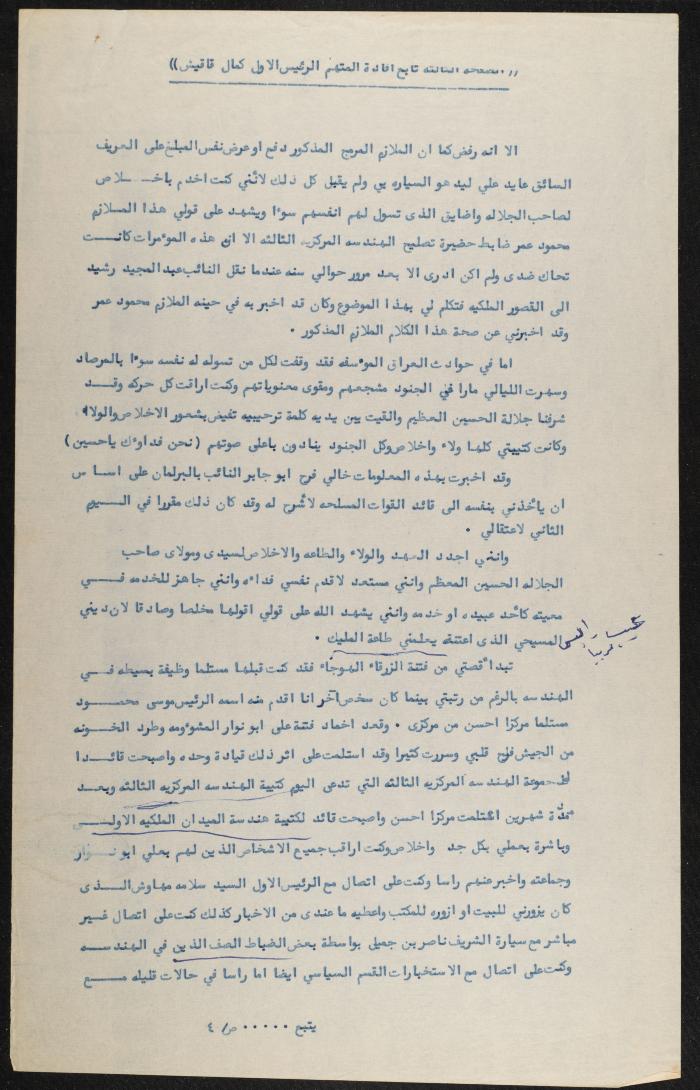 (( الصفحه الثالثه تابع افادة المتهم الرئيس الاول كمال قاقيش ))
الا انه رفض كما ان الملازم المرمج المذكور دفع او عرض نفس المبلغ على العريف
السائق عايد علي ليد هو السياره بي ولم يقبل كل ذلك لانني كنت اخدم باخـــلاص
لصاحب الجلاله واضايق الذى تسول لهم انفسهم سوءا ويشهد على قولي هذا الملازم
محمود عمر ضابط حضيرة تصليح الهندسه المركزيه الثالثه الا ان هذه الموءمرات كانــت
تحاك ضدى ولم اكن ادرى الا بعد مرور حوالي سنه عندما نقل النائب عبد المجيد رشيد
الى القصور الملكيه فتكلم لي بهذا الموضوع وكان قد اخبر به في حينه الملازم محمود عمر
وقد اخبرني عن صحة هذا الكلام الملازم المذكور .
اما في حوادث العراق الموءسفه فقد وقفت لكل من تسوله له نفسه سوءا بالمرصاد
وسهرت الليالي مارا في الجنود مشجعهم ومقوى معنوياتهم وكنت اراقب كل حركه وقــد
شرفنا جلالة الحسين العظيم والقيت بين يديه كلمة ترحيبيه تفيض بشعور الاخلاص والولاء
وكانت كتيبتي كلها ولاء واخلاص وكل الجنود ينادون باعلى صوتهم ( نحن فداوءك ياحسين )
وقد اخبرت بهذه المعلومات خالي فرح ابو جابر النائب بالبرلمان على اساس
ان ياءخذني بنفسه الى قائد القوات المسلحه لأشرح له وقد كان ذلك مقررا في اليــوم
الثاني لاعتقالي .
وانني اجدد العهد والولاء والطاعه والاخلاص لسيدى ومولاى صاحب
الجلاله الحسين المعظم وانني مستعد لاقدم نفسي فداءه وانني جاهز للخدمه فـــي
معيته كأحد عبيده او خدمه وانني يشهد الله على قولي اقولها مخلصا وصادقا لان ديني
المسيحي الذى اعتنقه يعلمني طاعة المليك .
تبدأ قصتي من فتنة الزرقاء الهوجاء فقد كنت قبلها مستلما وظيفة بسيطه فـــي
الهندسه بالرغم من رتبتي بينما كان شخص آخر انا اقدم منه اسمه الرئيس موسى محمــود
مستلما مركزا احسن من مركزى . وقعد اخماد فتنة على ابو نوار المشوءومه وطرد الخــونه
من الجيش فلج قلبي وسررت كثيرا وقد استلمت على اثر ذلك قيادة وحده واصبحت قائــدا
لمجموعة الهندسه المركزيه الثالثه التي تدعى اليوم كتيبة الهندسه المركزيه الثالثه وبعــد
مدة شهرين استلمت مركزا احسن واصبحت قائد لكتيبة هندسة الميدان الملكيه الاولــى
وباشرة بعملي بكل جد واخلاص وكنت اراقب جميع الاشخاص الذين لهم بعلي ابو نــوار
وجماعته واخبر عنهم راسا وكنت على اتصال مع الرئيس الاول السيد سلامه مهاوش الــذى
كان يزورني للبيت او ازوره للمكتب واعطيه ما عندى من الاخبار كذلك كنت على اتصال غــير
مباشر مع سيارة الشريف ناصر بن جميل بواسطة بعض الضباط الصف الذين في الهندســه
وكنت على اتصال مع الاستخبارات القسم السياسي ايضا اما راسا في حالات قليله مـــع
يتبع ..... ص/ ٤